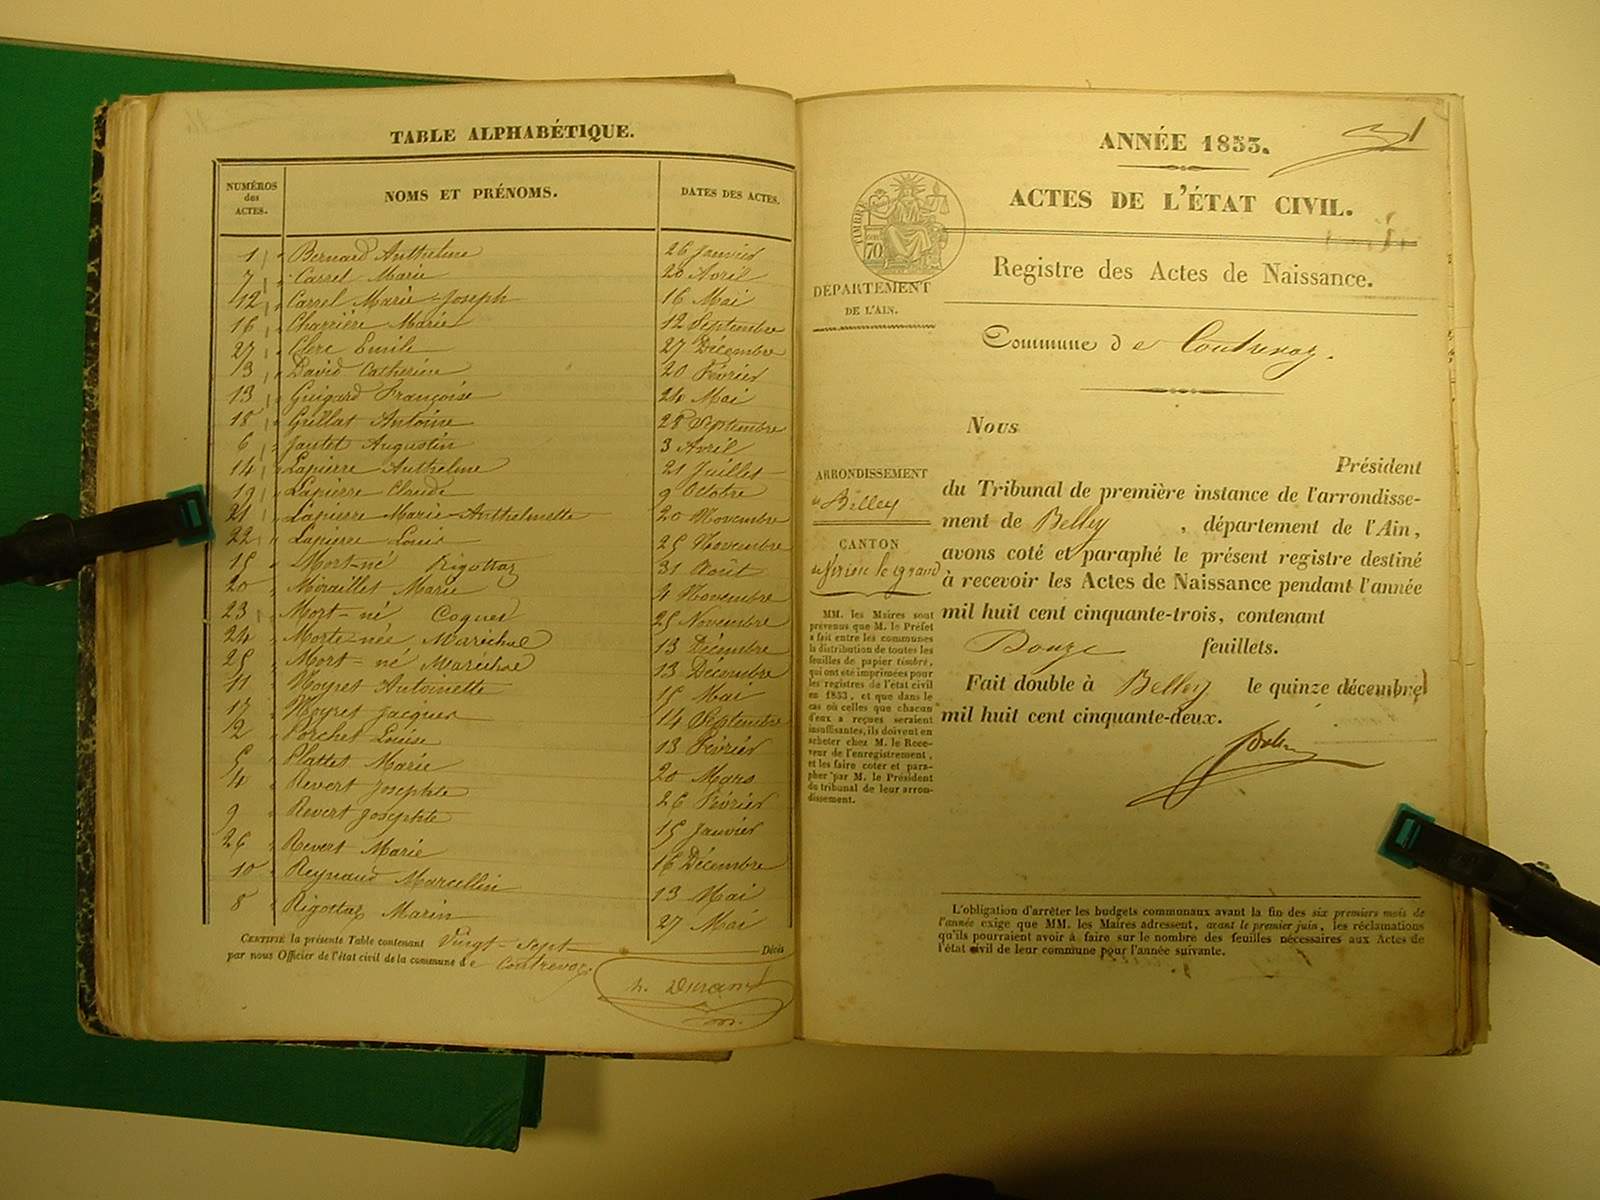 TABLE ALPHABÉTIQUE.
NUMÉROS des ACTES.
NOMS ET PRÉNOMS.
DATES DES ACTES.
1 Bernard Anthelme 26 Janvier
7 Carrel Marie 20 Avril
12 Carrel Marie-Joseph 16 Mai
16 Charrière Marie 12 Septembre
27 Clerc Emile 27 Décembre
3 David Catherine 20 Février
13 Guigard Françoise 24 Mai
18 Grillat Antoine 28 Septembre
6 Jantet Augustin 3 Avril
14 Lapierre Anthelme 21 Juillet
19 Lapierre Claude 9 Octobre
21 Lapierre Marie-Anthelmette 20 Novembre
22 Lapierre Louis 25 Novembre
15 Mort-né Rigottaz 31 Août
20 Miraillet Marie 4 Novembre
23 Mort-né Coquet 25 Novembre
24 Morte-née Maréchal 13 Décembre
25 Mort-né Maréchal 13 Décembre
11 Moyret Antoinette 15 Mai
17 Moyret Jacques 14 Septembre
2 Porchet Louise 13 Février
5 Plattet Marie 20 Mars
4 Revert Josephte 26 Février
9 Revert Josephte 15 Janvier
26 Revert Marie 16 Décembre
10 Reynaud Marcellin 13 Mai
8 Rigottaz Marin 27 Mai
CERTIFIÉ la présente Table contenant Vingt-Sept Décès
par nous Officier de l'état civil de la commune de Contrevoz.
h. Durand
ANNÉE 1853.
1
ACTES DE L'ÉTAT CIVIL.
TIMBRE
70
Registre des Actes de Naissance.
DÉPARTEMENT
DE L'AIN.
Commune de Contrevoz.
Nous
Président
ARRONDISSEMENT
de Belley
CANTON
de Virieu le grand
du Tribunal de première instance de l'arrondisse-
ment de Belley, département de l'Ain,
avons coté et paraphé le présent registre destiné
à recevoir les Actes de Naissance pendant l'année
mil huit cent cinquante-trois, contenant
Douze feuillets.
Fait double à Belley le quinze décembre
mil huit cent cinquante-deux.
MM. les Maires sont
prévenus que M. le Préfet
a fait entre les communes
la distribution de toutes les
feuilles de papier timbré,
qui ont été imprimées pour
les registres de l'état civil
en 1853, et que dans le
cas où celles que chacun
d'eux a reçues seraient
insuffisantes, ils doivent en
acheter chez M. le Rece-
veur de l'enregistrement,
et les faire coter et para-
pher par M. le Président
du tribunal de leur arron-
dissement.
L'obligation d'arrêter les budgets communaux avant la fin des six premiers mois de
l'année exige que MM. les Maires adressent, avant le premier juin, les réclamations
qu'ils pourraient avoir à faire sur le nombre des feuilles nécessaires aux Actes de
l'état civil de leur commune pour l'année suivante.